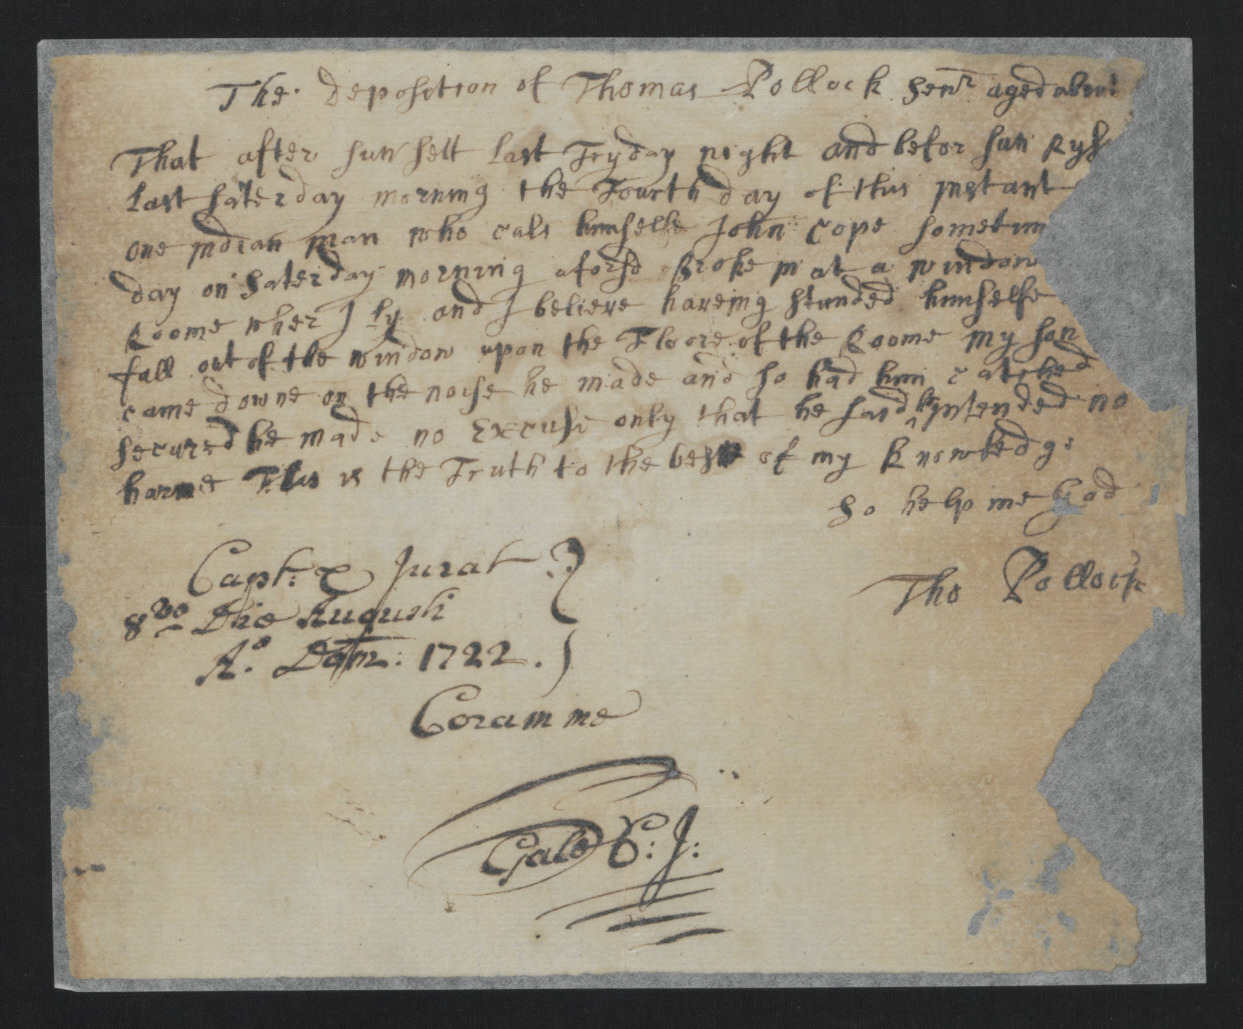 The deposition of Thomas Pollock Senr aged about
That after sun sett last Fryday night and befor sun Ryse
last Saterday morning the Fourth day of this instant
one indian man who cals himselfe John Cope sometim
day on Saterday morning aforsd Broke in at a window
Roome wher I ly and I believe haveing stunded himselfe
fall out of the window upon the Floore of the Roome my son
came downe on the noise he made and so had him catched
secured he made no Excuse only that he said he intended no
harme This is the Truth to the best of my knowledge
So help me God
Tho Pollock
Capt: & Jurat
8vo Die Augusti
Ao Dom: 1722.
Coram me
C Gale C: J: